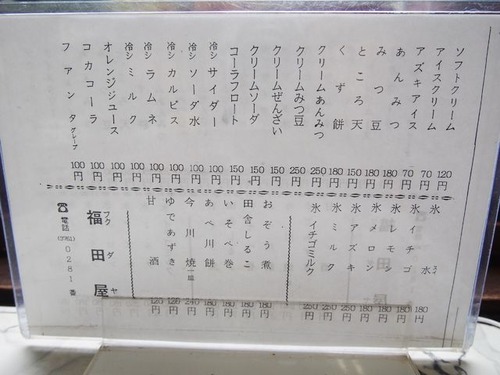 ソフトクリーム 120円
アイスクリーム 70円
アズキアイス 70円
あんみつ 180円
みつ豆 180円
ところ天 150円
くず餅 180円
クリームあんみつ 250円
クリームみつ豆 250円
クリームぜんざい 150円
クリームソーダ 150円
コーラフロート 150円
冷シサイダー 100円
冷シソーダ水 100円
冷シカルピス 100円
冷シラムネ 100円
冷シミルク 100円
オレンジジュース 100円
コカコーラ 100円
ファンタグレープ 100円
氷水 180円
氷イチゴ 180円
氷レモン 180円
氷メロン 180円
氷アズキ 250円
氷ミルク 250円
氷イチゴミルク 250円
おぞう煮 180円
田舎しるこ 180円
いそべ巻 180円
あべ川餅 180円
今川焼 240円
ゆであずき 120円
甘酒 120円
福田屋
フクダヤ
☎電話(3761)0281番